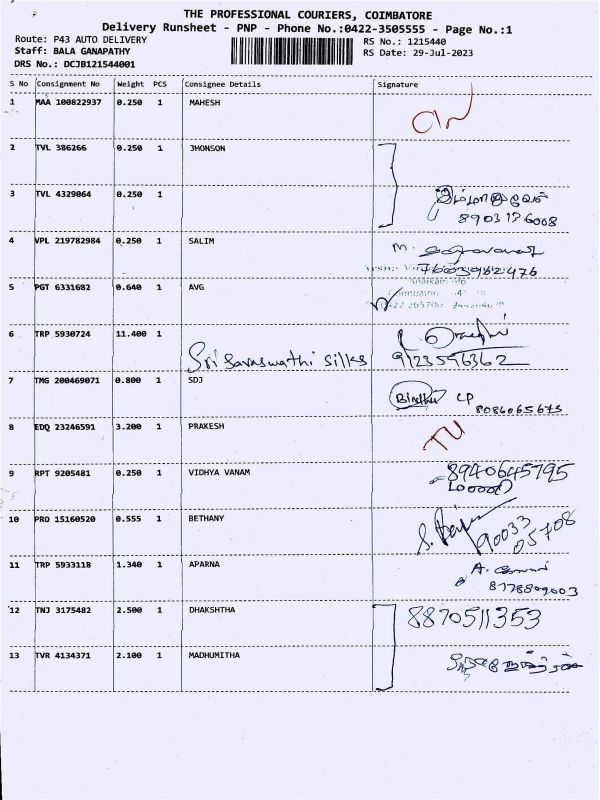 THE PROFESSIONAL COURIERS, COIMBATORE
Delivery Runsheet - PNP - Phone No.:0422-3505555 - Page No.:1
Route: P43 AUTO DELIVERY
RS No.: 1215440
Staff: BALA GANAPATHY
RS Date: 29-Jul-2023
DRS No.: DCJB121544001
S No Consignment No Weight PCS Consignee Details Signature
1 MAA 100822937 0.250 1 MAHESH
2 TVL 386266 0.250 1 JHONSON
3 TVL 4329064 0.250 1
8903176008
4 VPL 219782984 0.250 1 SALIM M.
5 PGT 6331682 0.640 1 AVG
6 TRP 5930724 11.400 1
Sri Saraswathi silks 9123596362
7 TMG 200469071 0.800 1 SDJ
8086065673
8 EDQ 23246591 3.200 1 PRAKESH
9 RPT 9205481 0.250 1 VIDHYA VANAM 8940645795
10 PRO 15160520 0.555 1 BETHANY 90033
05708
11 TRP 5933118 1.340 1 APARNA A.
8778809003
12 TNJ 3175482 2.500 1 DHAKSHTHA 8870511353
13 TVR 4134371 2.100 1 MADHUMITHA